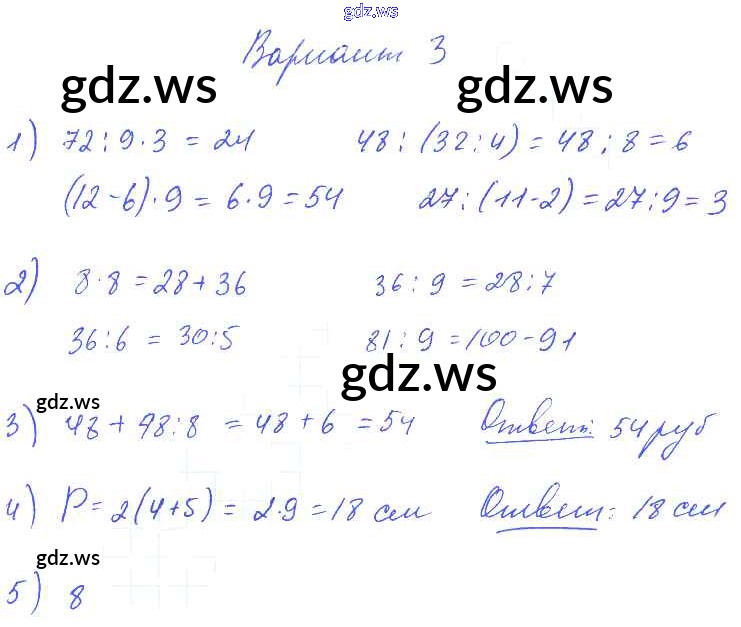 gdz.ws
Вариант 3
gdz.ws gdz.ws
1) 72:9·3 = 24 48:(32:4) = 48:8 = 6
(12-6)·9 = 6·9 = 54 27:(11-2) = 27:9 = 3
2) 8·8 = 28+36 36:9 = 28:7
36:6 = 30:5 81:9 = 100-91
gdz.ws
gdz.ws
3) 48+48:8 = 48+6 = 54 Ответ: 54 руб
4) P = 2(4+5) = 2·9 = 18 см Ответ: 18 см
gdz.ws
5) 8